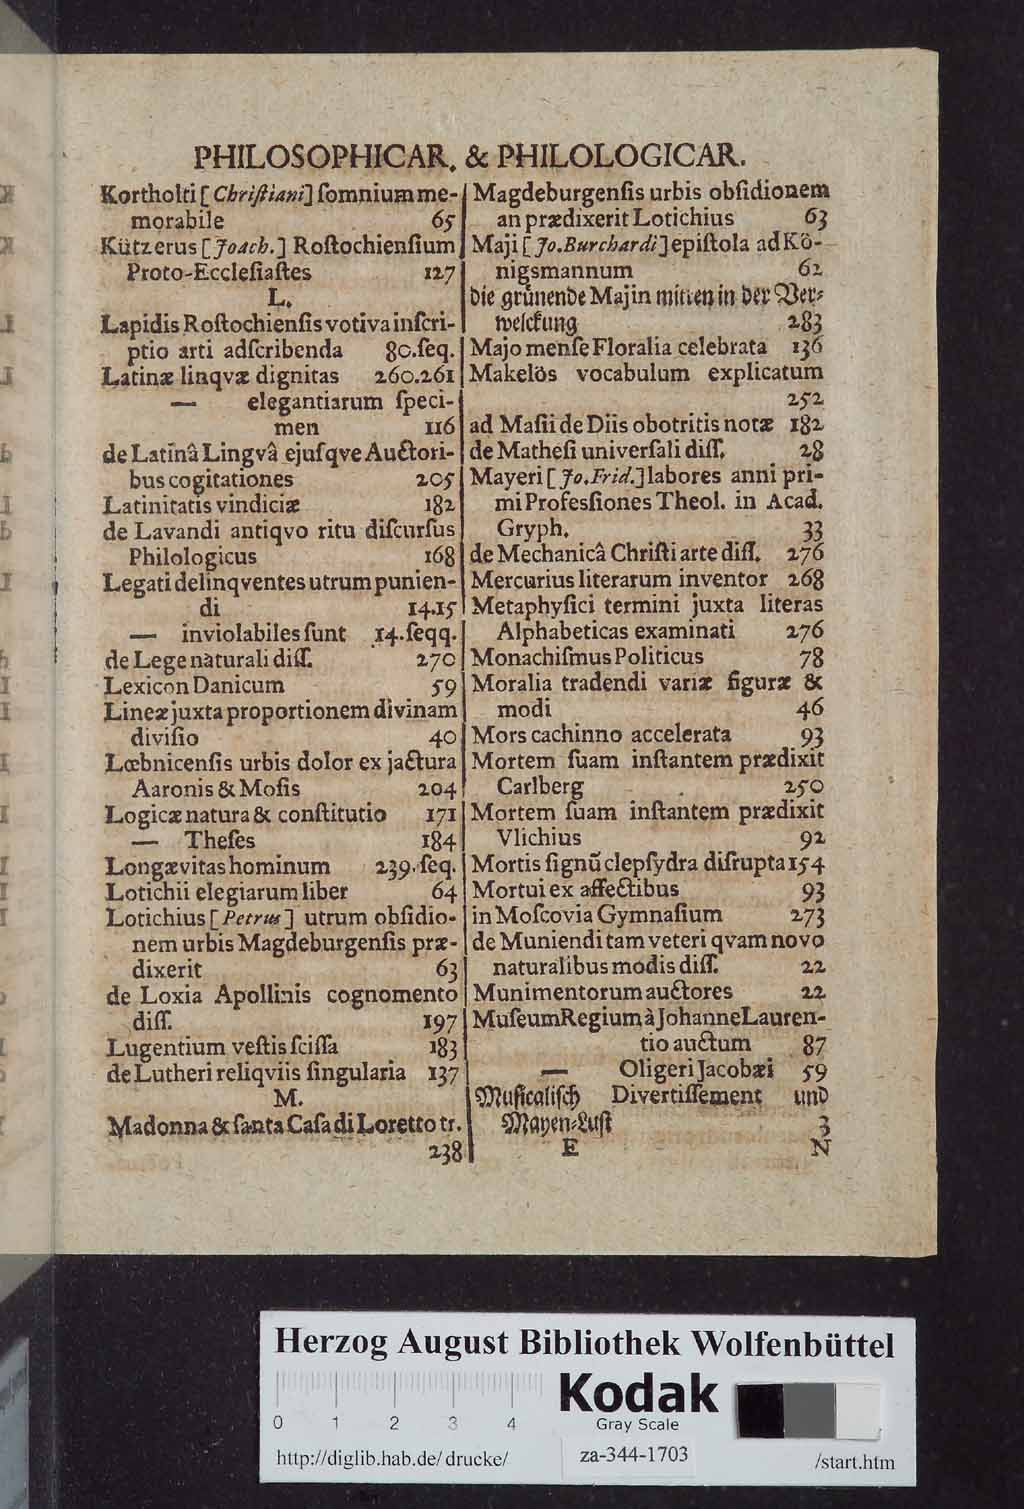 PHILOSOPHICAR. & PHILOLOGICAR.
Kortholti [Chriſtiani] ſomnium me-
morabile 65
Kützerus [Joach.] Roſtochienſium
Proto-Eccleſiaſtes 127
L.
Lapidis Roſtochienſis votiva inſcri-
ptio arti adſcribenda 80.ſeq.
Latinæ linqvæ dignitas 260.261
— elegantiarum ſpeci-
men 116
de Latinâ Lingvâ ejuſqve Auctori-
bus cogitationes 205
Latinitatis vindiciæ 182
de Lavandi antiqvo ritu diſcurſus
Philologicus 168
Legati delinqventes utrum punien-
di 14.15
— inviolabiles ſunt 14.ſeqq.
de Lege naturali diſſ. 270
Lexicon Danicum 59
Lineæ juxta proportionem divinam
diviſio 40
Lœbnicenſis urbis dolor ex jactura
Aaronis & Moſis 204
Logicæ natura & conſtitutio 171
— Theſes 184
Longævitas hominum 239.ſeq.
Lotichii elegiarum liber 64
Lotichius [Petrus] utrum obſidio-
nem urbis Magdeburgenſis præ-
dixerit 63
de Loxia Apollinis cognomento
diſſ. 197
Lugentium veſtis ſciſſa 183
de Lutheri reliqviis ſingularia 137
M.
Madonna & ſanta Caſa di Loretto tr.
238
Magdeburgenſis urbis obſidionem
an prædixerit Lotichius 63
Maji [Jo. Burchardi] epiſtola ad Kö-
nigsmannum 62
die grünende Maj in mitten in der Ver-
welckung 283
Majo menſe Floralia celebrata 136
Makelös vocabulum explicatum
252
ad Maſii de Diis obotritis notæ 182
de Matheſi univerſali diſſ. 28
Mayeri [Jo. Frid.] labores anni pri-
mi Profesſiones Theol. in Acad.
Gryph. 33
de Mechanicâ Chriſti arte diſſ. 276
Mercurius literarum inventor 268
Metaphyſici termini juxta literas
Alphabeticas examinati 276
Monachiſmus Politicus 78
Moralia tradendi variæ figuræ &
modi 46
Mors cachinno accelerata 93
Mortem ſuam inſtantem prædixit
Carlberg 250
Mortem ſuam inſtantem prædixit
Vlichius 92
Mortis ſignū clepſydra diſrupta 154
Mortui ex affectibus 93
in Moſcovia Gymnaſium 273
de Muniendi tam veteri qvam novo
naturalibus modis diſſ. 22
Munimentorum auctores 22
Muſeum Regium à Johanne Lauren-
tio auctum 87
— Oligeri Jacobæi 59
Muſicaliſch Divertiſſement und
Mayen-Luſt 3
E N
Herzog August Bibliothek Wolfenbüttel
0 1 2 3 4
Kodak
Gray Scale
http://diglib.hab.de/drucke/ za-344-1703 /start.htm